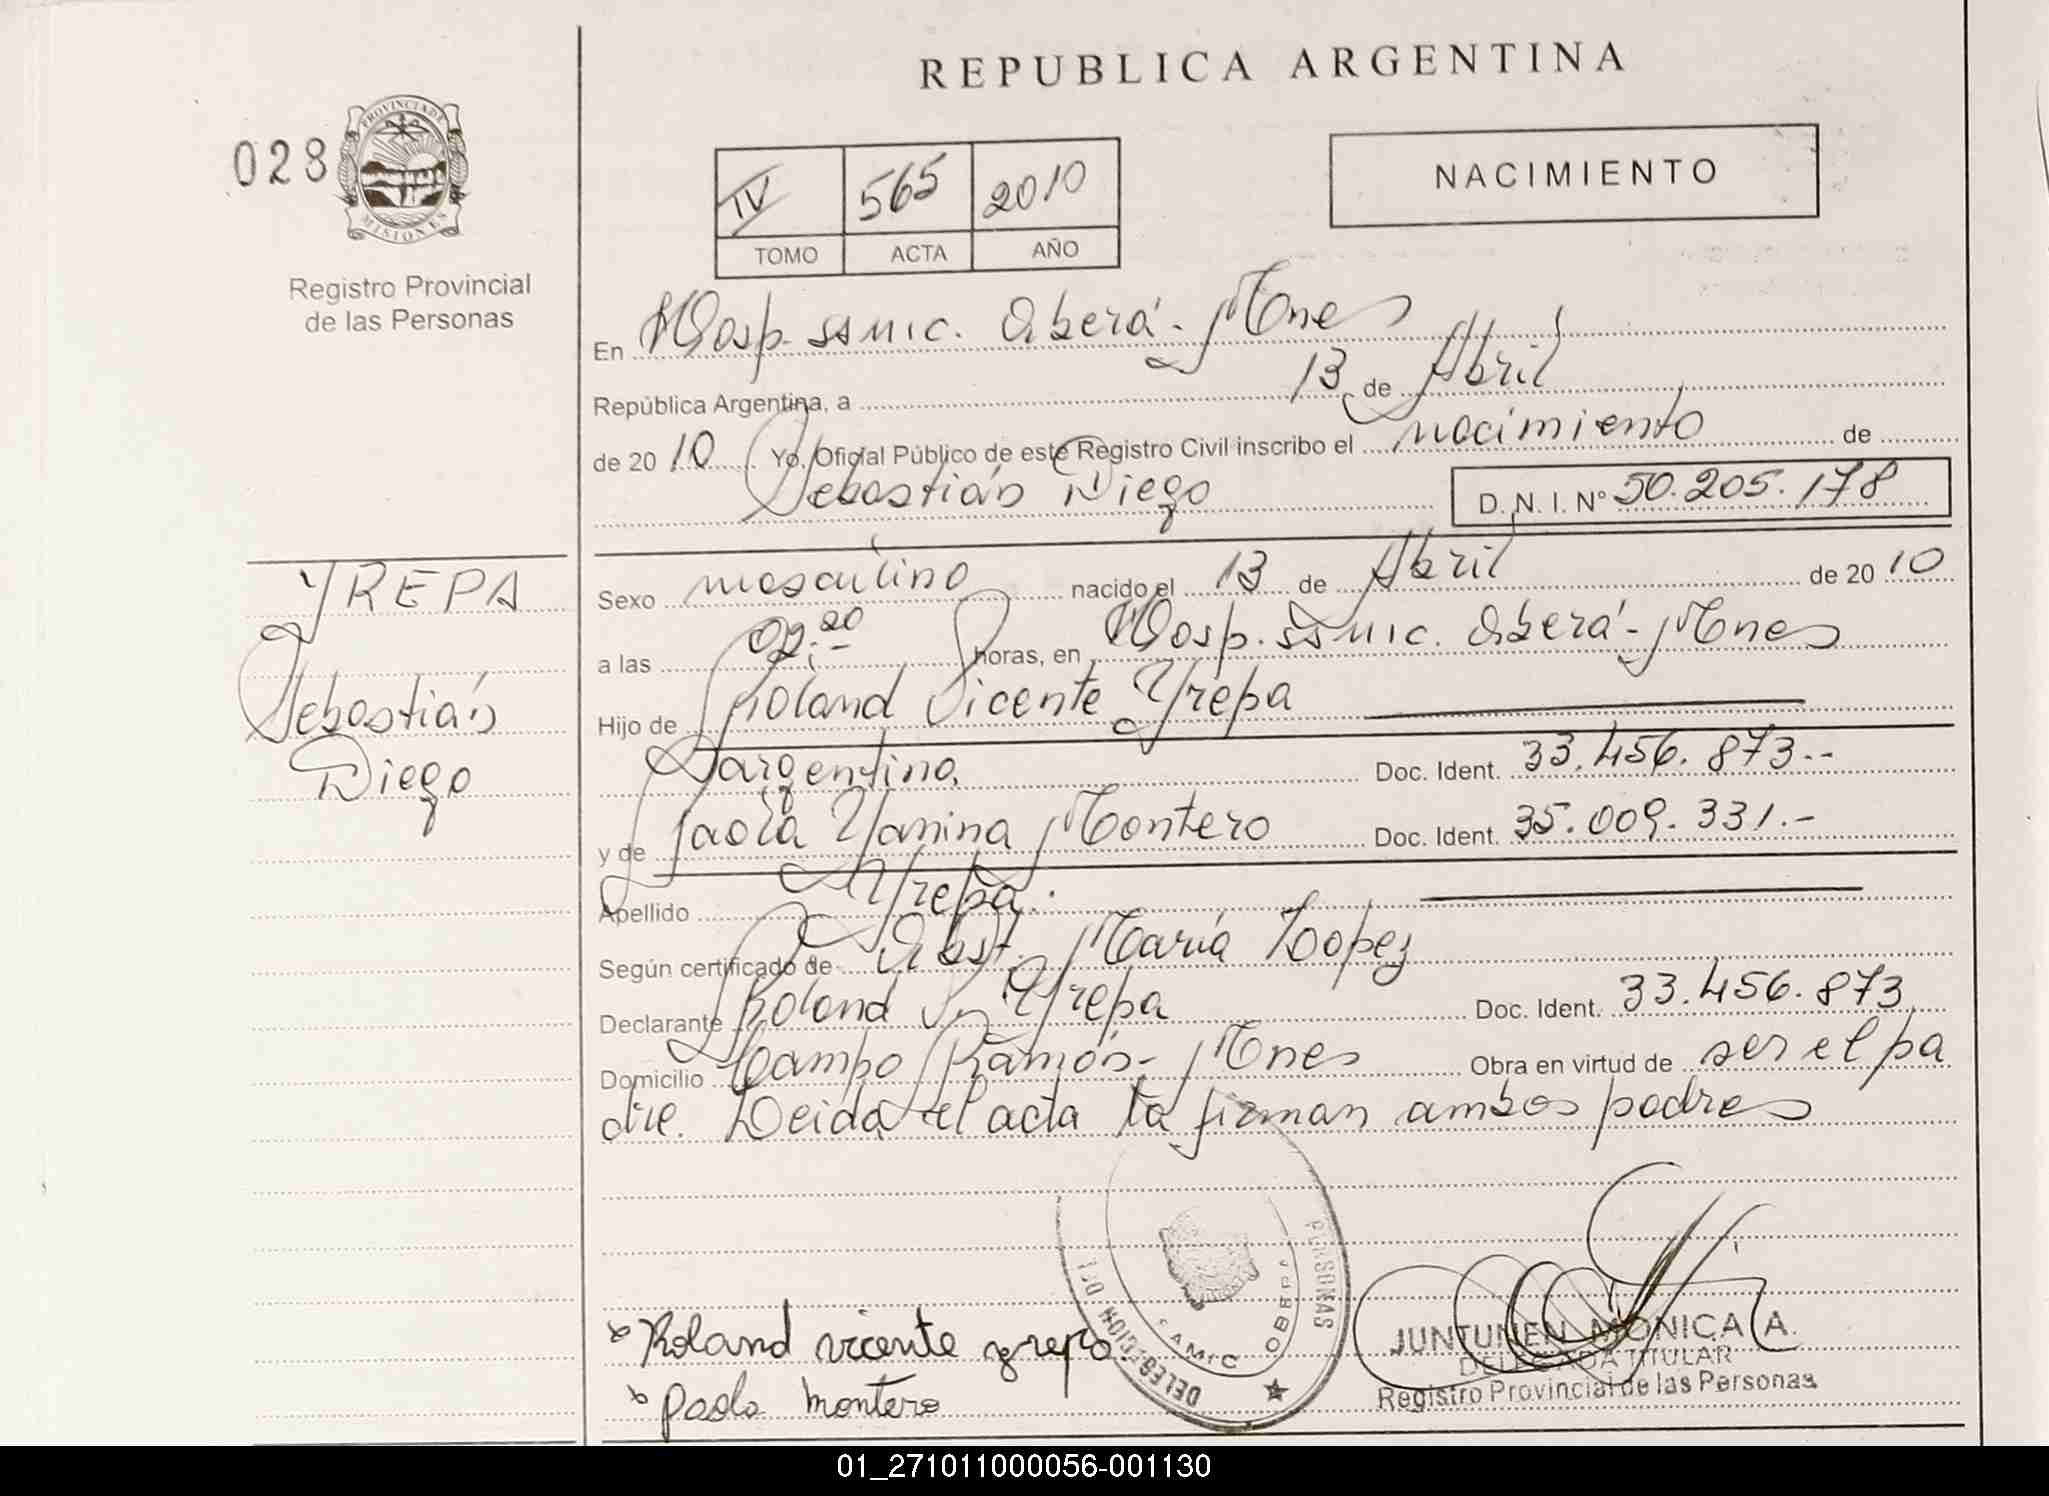 REPUBLICA ARGENTINA
028
PROVINCIA DE
MISIONES
Registro Provincial
de las Personas
IV 565 2010
TOMO ACTA AÑO
NACIMIENTO
En Hosp. SAMIC. Oberá - Mnes
República Argentina, a 13 de Abril
de 2010 Yo, Oficial Público de este Registro Civil inscribo el nacimiento de
Sebastián Diego D. N. I. Nº 50.205.178
YREPA
Sebastián
Diego
Sexo masculino nacido el 13 de Abril de 2010
a las 02:20 horas, en Hosp. SAMIC. Oberá - Mnes
Hijo de Roland Vicente Yrepa
argentino, Doc. Ident. 33.456.873.-
y de Paola Yanina Montero Doc. Ident. 35.009.331.-
Apellido Yrepa.
Según certificado de Obst. María Lopez
Declarante Roland V. Yrepa Doc. Ident. 33.456.873
Domicilio Campo Ramón - Mnes Obra en virtud de ser el pa
dre. Leida el acta la firman ambos padres
PERSONAS
SAMIC OBERA
Roland vicente yrepa.
paola montero
JUNTUNEN MONICA A.
DELEGADA TITULAR
Registro Provincial de las Personas
01_271011000056-001130